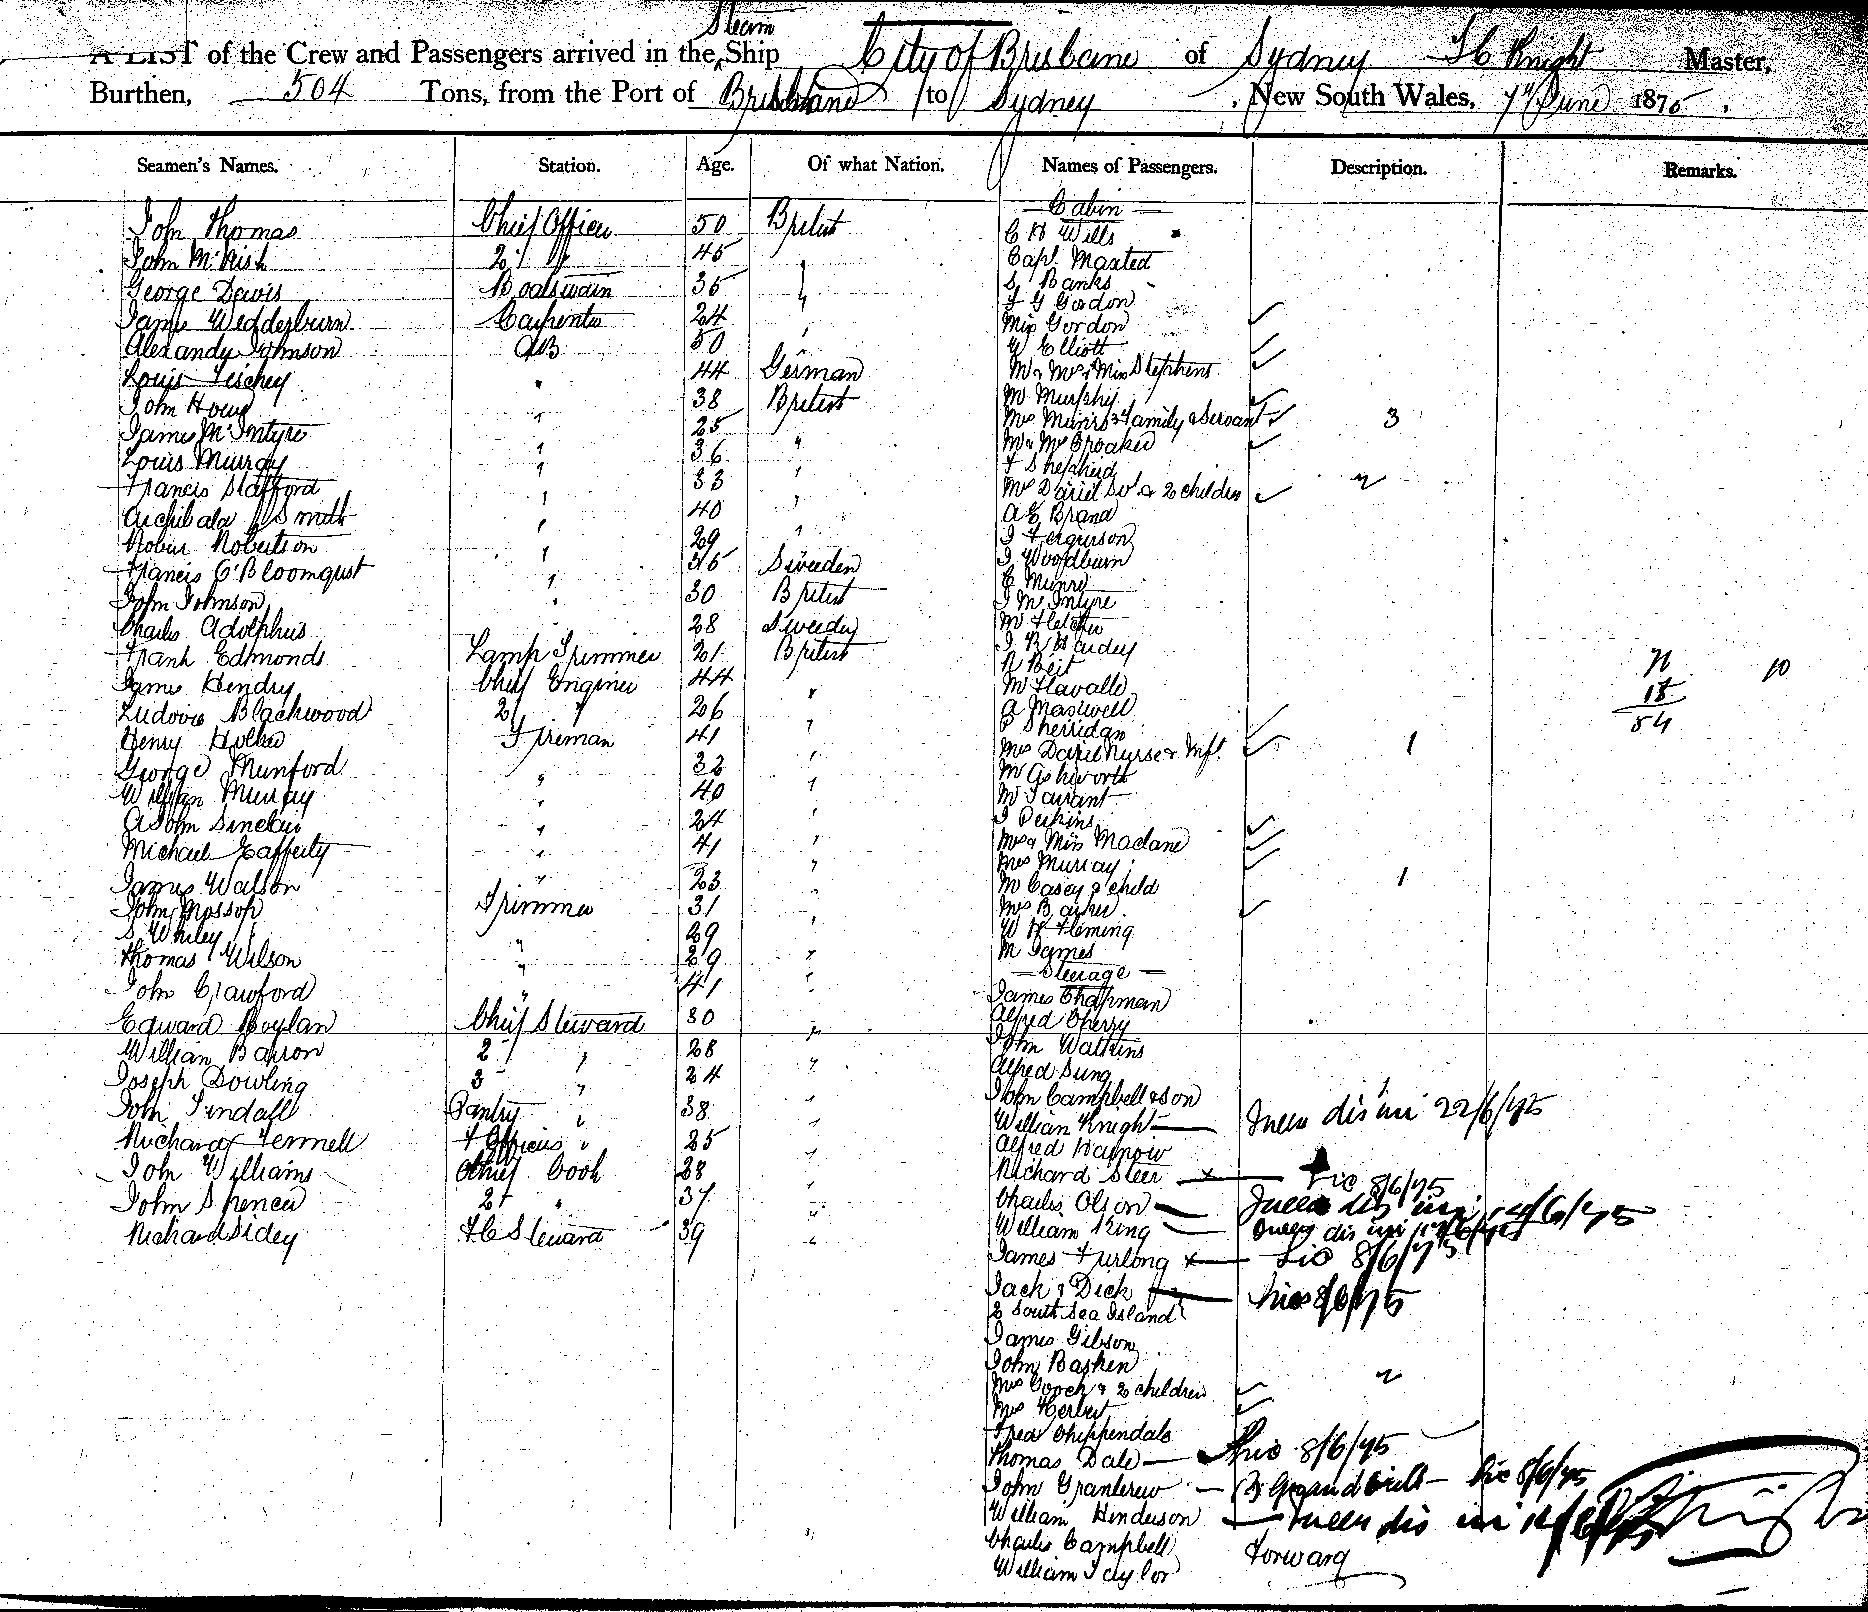 Steam
A LIST of the Crew and Passengers arrived in the Ship City of Brisbane of Sydney Knight Master,
Burthen, 504 Tons, from the Port of Brisbane to Sydney, New South Wales, 7th June 1875.
Seamen's Names. Station. Age. Of what Nation. Names of Passengers. Description. Remarks.
John Thomas Chief Officer 50 British
John McNish 2d " 45 "
George Dewis Boatswain 35 "
James Wedderburn Carpenter 24 "
Alexandr Johnson AB 50
Louis Tischey " 44 German
John Howe " 38 British
James McIntyre " 25 "
Louis Murray " 36 "
Francis Stafford " 33 "
Archibald Smith " 40 "
Robert Robertson " 29 "
Francis O'Bloomqust " 36 Sweeden
John Johnson " 30 British
Charles Adolphus 28 Sweeden
Frank Edmonds Lamp Trimmer 21 British
James Hendry Chief Engineer 44 "
Ludovic Blackwood 2d " 26 "
Henry Fireman 41 "
George Munford " 32 "
William Murray " 40 "
John Sinclair " 24 "
Michael Lafferty " 41 "
James Watson " 23 "
John Mossop Trimmer 31 "
S Whiley " 29 "
Thomas Wilson " 29 "
John Crawford " 41 "
Edward Boylan Chief Steward 30 "
William Barron 2 " 28 "
Joseph Dowling 3 " 24 "
John Tindall Pantry " 38 "
Richard Fennell F Officers " 25 "
John Williams Chief Cook 28 "
John Spencer 2d " 37 "
Richard Sidey F C Steward 39 "
Cabin
C H Wills
Capt. Maxted
S Banks
F G Gordon
Miss Gordon
W Elliott
Mr & Mrs & Miss Stephens
Mr Murphy
Mrs Munro 3 Family & Servant 3
Mr & Mrs Croaker
F Shepherd
Mrs & 2 children 2
A E Brand
J Fergurson
J Woodburn
C Munro
J McIntyre
Mr Fletcher
J R Hardey
R Beit
Mr Flavalle
A Maxwell
P Sherridan
Mrs Nurse & Inft. 1
Mr Ashworth
Mr Tarrant
J Perkins
Mrs & Miss Maclane
Mrs Murray
Mr Casey & child 1
Mrs Barker
W H Fleming
Mr James
Steerage
James Chapman
Alfred Cherry
John Watkins
Alfred Sung
John Campbell & son 1
William Knight 22/6/75
Alfred
Richard Steer 8/6/75
Charles Olson
William King
James Furlong 8/6/75
Jack & Dick 8/6/75
2 South Sea Island
James Gibson
John Basken
Mrs Gooch & 2 children 2
Mrs Herbert
Fred Chippendale
Thomas Dale 8/6/75
John 8/6/75
William Henderson
Charles Campbell Forward
William Taylor
10
18
54